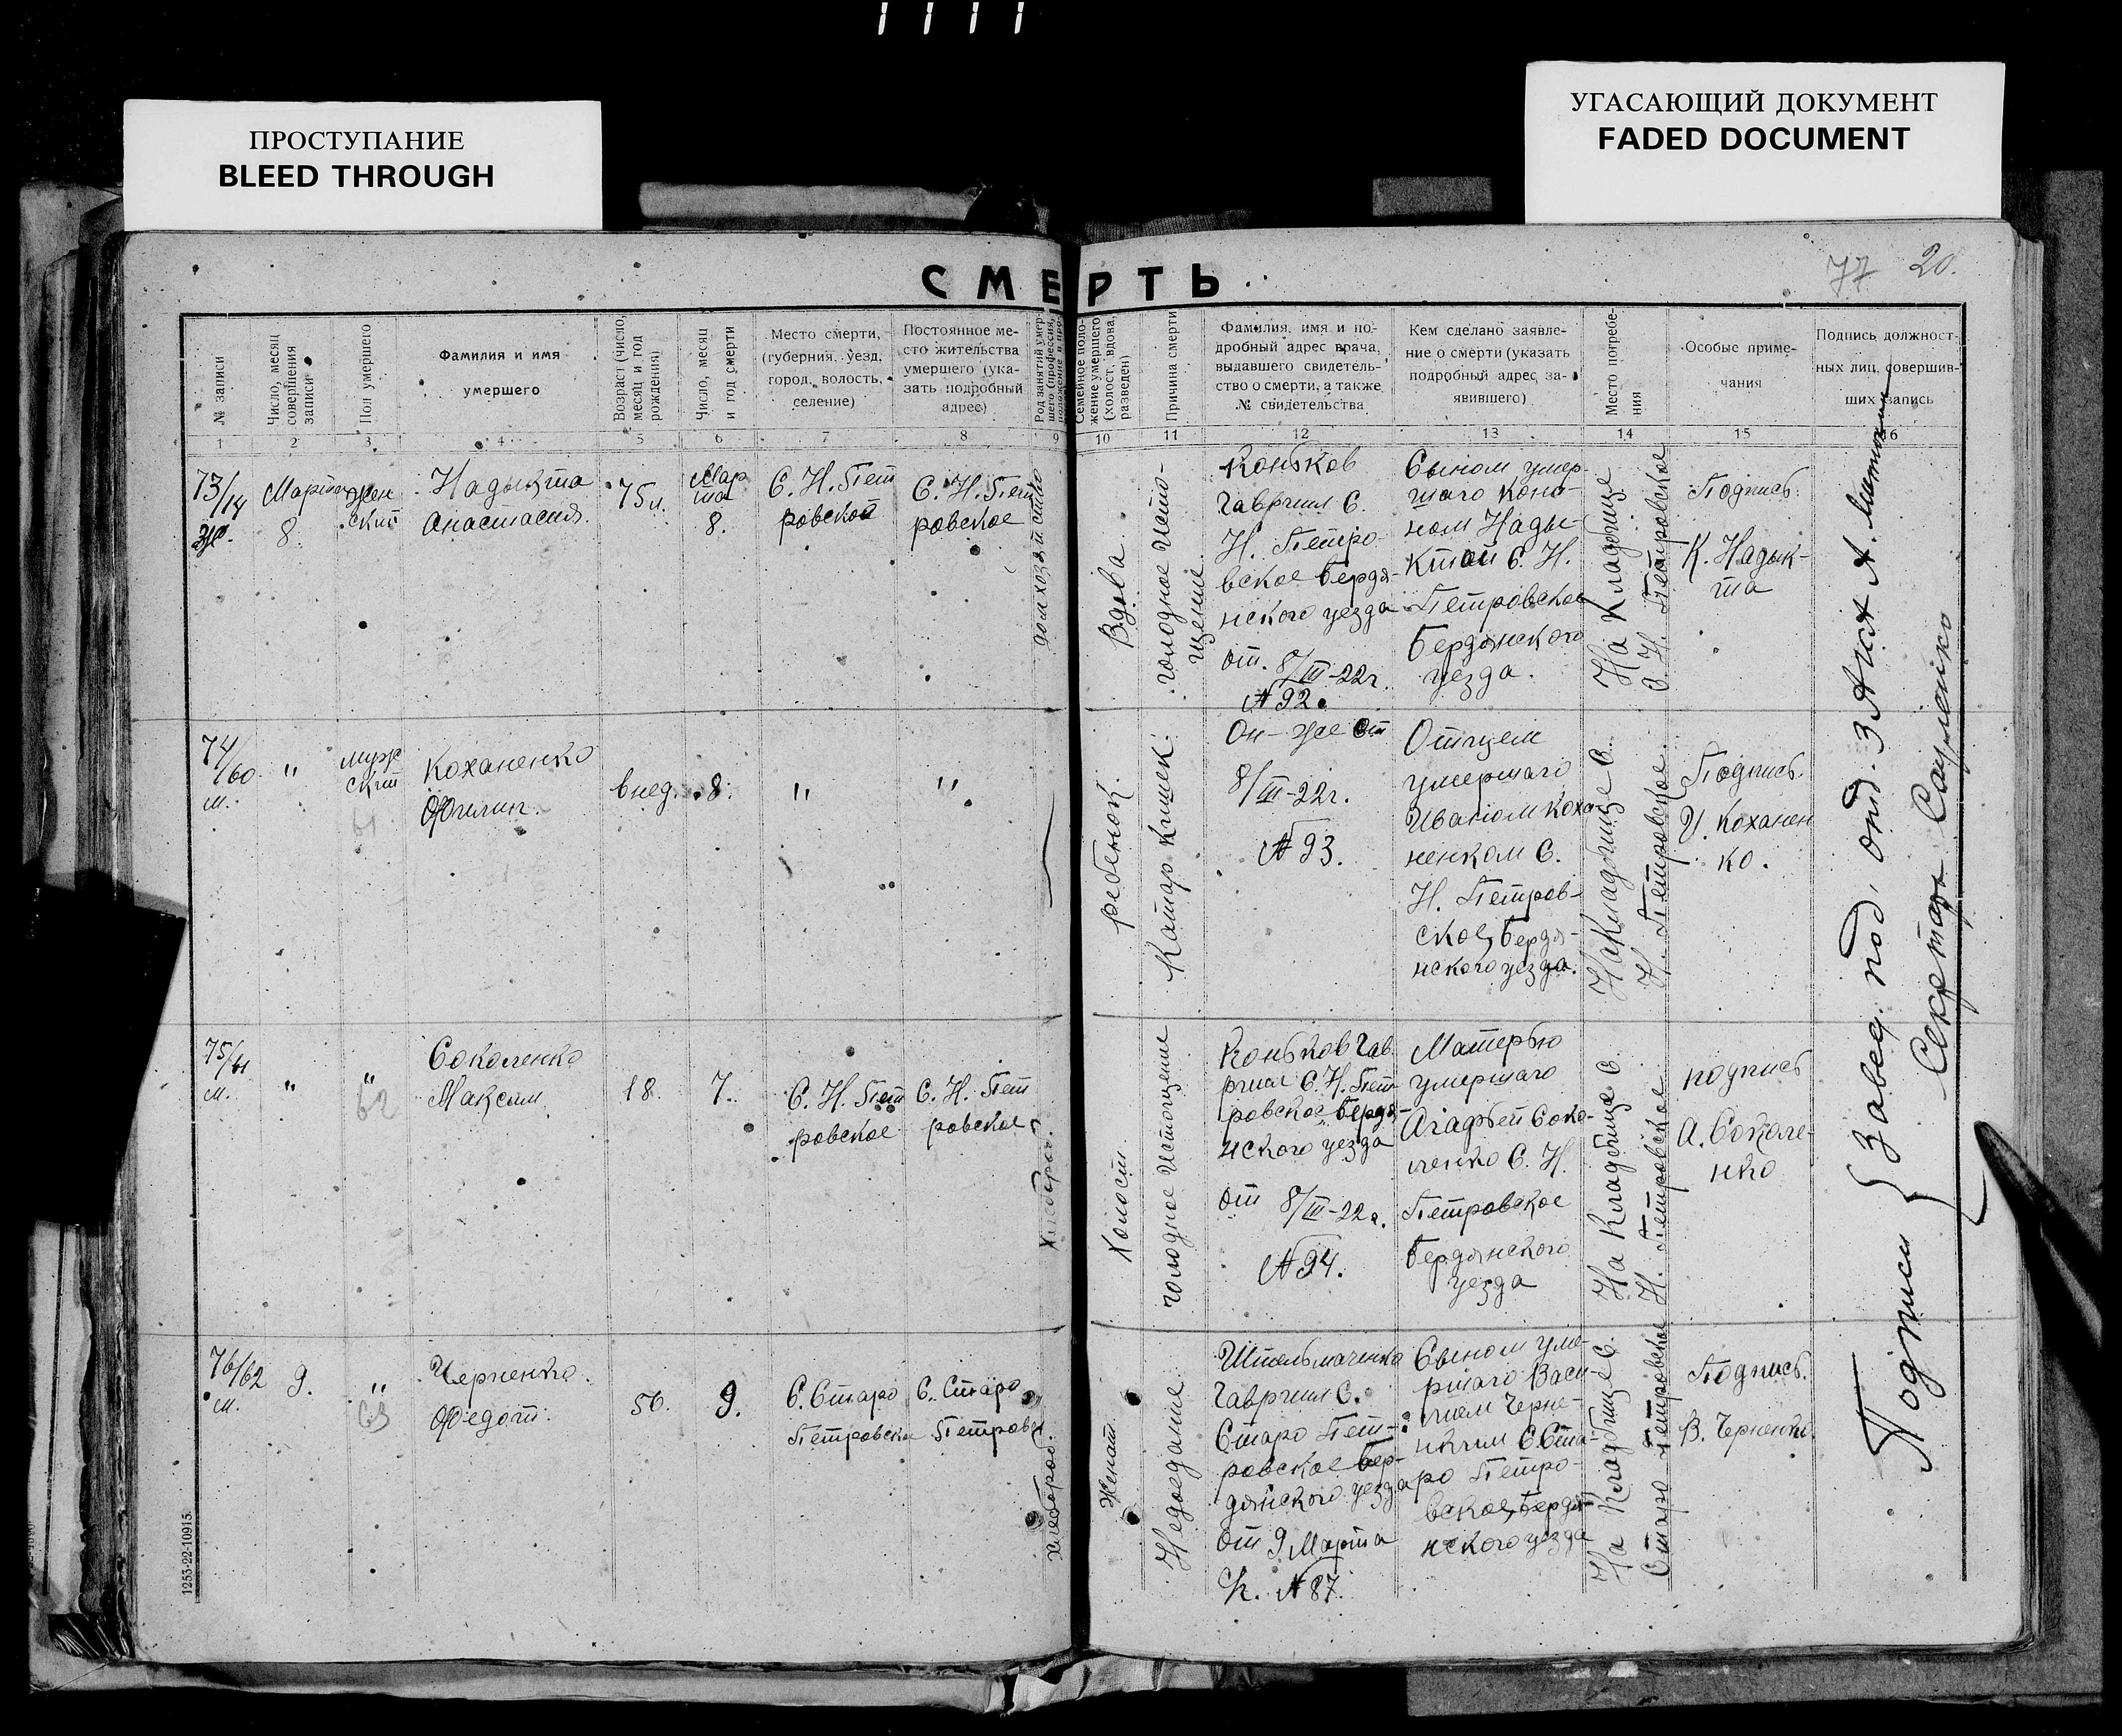 ПРОСТУПАНИЕ
BLEED THROUGH
УГАСАЮЩИЙ ДОКУМЕНТ
FADED DOCUMENT
77 20.
СМЕРТЬ
№ записи
Число, месяц
совершения
записи
Пол умершего
Фамилия и имя
умершего
Возраст (число,
месяц и год
рождения)
Число, месяц
и год смерти
Место смерти,
(губерния, уезд,
город, волость,
селение)
Постоянное ме-
сто жительства
умершего (ука-
зать подробный
адрес)
Род занятий умер-
шего (профессия,
Семейное поло-
жение умершего
(холост, вдова,
разведен)
Причина смерти
Фамилия, имя и по-
дробный адрес врача,
выдавшего свидетель-
ство о смерти, а также
№ свидетельства
Кем сделано заявле-
ние о смерти (указать
подробный адрес за-
явившего)
Место погребе-
ния
Особые приме-
чания
Подпись должност-
ных лиц, совершив-
ших запись
1 2 3 4 5 6 7 8 9 10 11 12 13 14 15 16
73/14
ж.
Марта
8.
жен
ский
Надыкта
Анастасия.
75 л.
Мар
та
8.
С. Н. Пет
ровской
С. Н. Пет
ровское
домхозяйство
Вдова
голодное исто-
щение
Коньков
Гавриил С.
Н. Петро-
вское Бердя-
нского уезда
от 8/III-22г.
№ 92.
Сыном умер-
шаго Коно-
ном Нады-
ктой С. Н.
Петровское
Бердянского
уезда.
На Кладбище
С. Н. Петровское
Подпись:
К. Надык-
та
74/60
м.
"
муж
ский
61
Коханенко
Филип.
6 нед.
8.
"
"
ребенок.
Катар кишек.
Он-же от
8/III-22г.
№ 93.
Отцем
умершаго
Иваном Коха-
ненком С.
Н. Петров-
ское, Бердя-
нского уезда.
На Кладбище С.
Н. Петровское.
Подпись.
И. Коханен
ко.
75/61
м.
"
"
62
Соколенко
Максим
18.
7.
С. Н. Пет
ровское
С. Н. Пет
ровское
Хлебороб.
Холост
голодное истощение
Коньков Гав
риил С. Н. Пет
ровское Бердя-
нского уезда
от 8/III-22г.
№ 94.
Матерью
умершаго
Агафьей Соко-
ленко С. Н.
Петровское
Бердянского
уезда
На Кладбище С.
Н. Петровское
подпись
А. Соколе-
нко
76/62
м.
9.
"
63
Черненко.
Федот.
56.
9.
С. Старо
Петровска
С. Старо
Петровск
Хлебороб.
Женат.
Недоедание
Штельмаченко
Гавриил С.
Старо Пет-
ровское Бер-
дянского уезда
от 9 Марта
№ 87.
Сыном уме-
ршаго Васи-
лием Черне-
нким С. Ста-
ро Петро-
вское, Бердя-
нского уезда
На Кладбище С.
Старо Петровское
Подпись.
В. Черненко.
Подписи { Завед. под. отд. ЗАГСА А.
Секретарь
1253-22-10915.